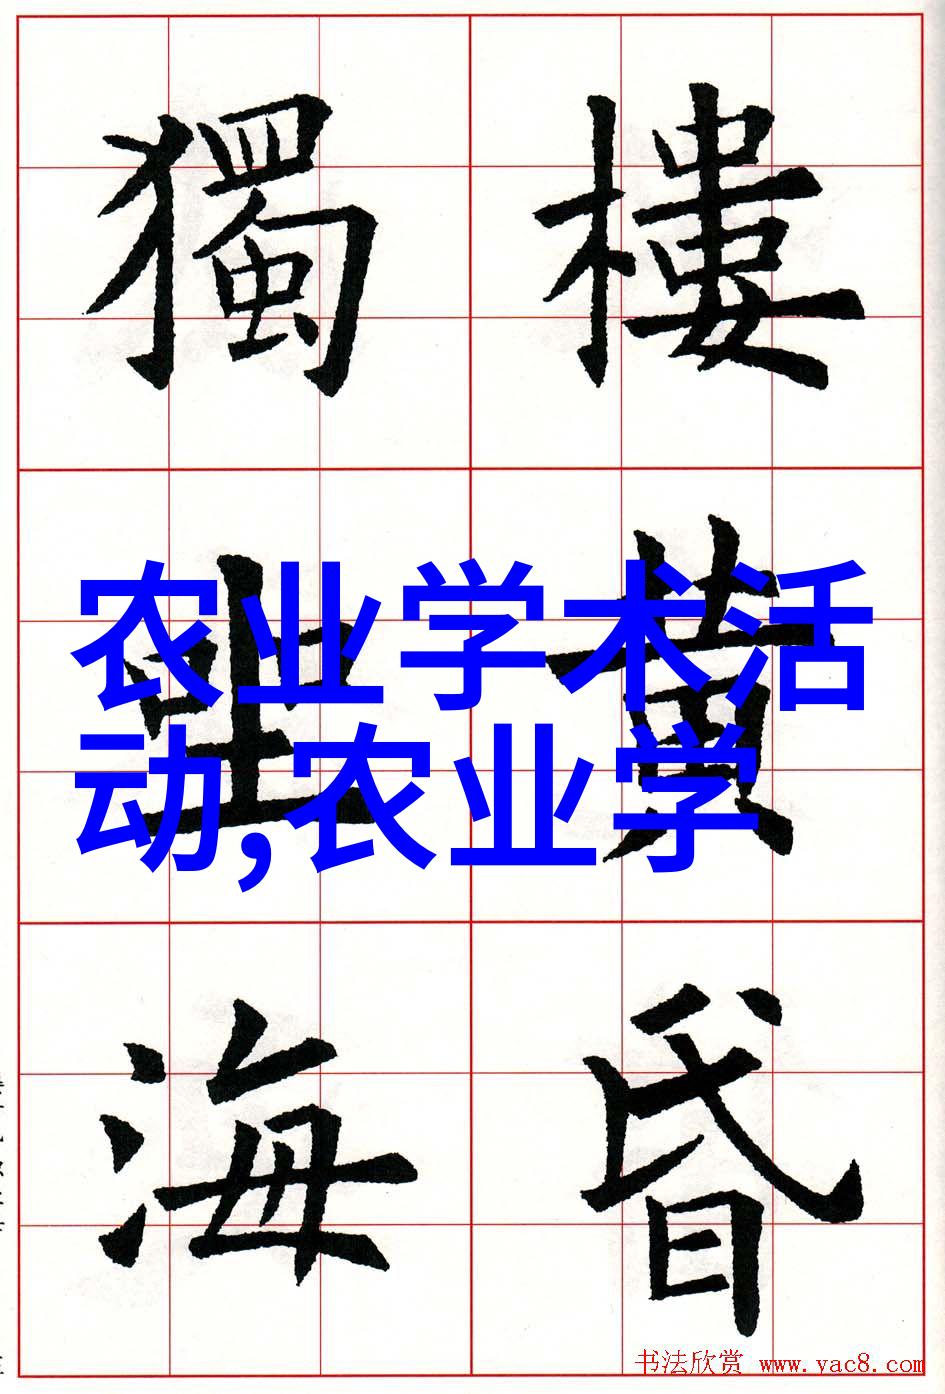 樓黄昏
獨坐海
农业学术活
动,农业学
书法欣赏 www.yac8.com